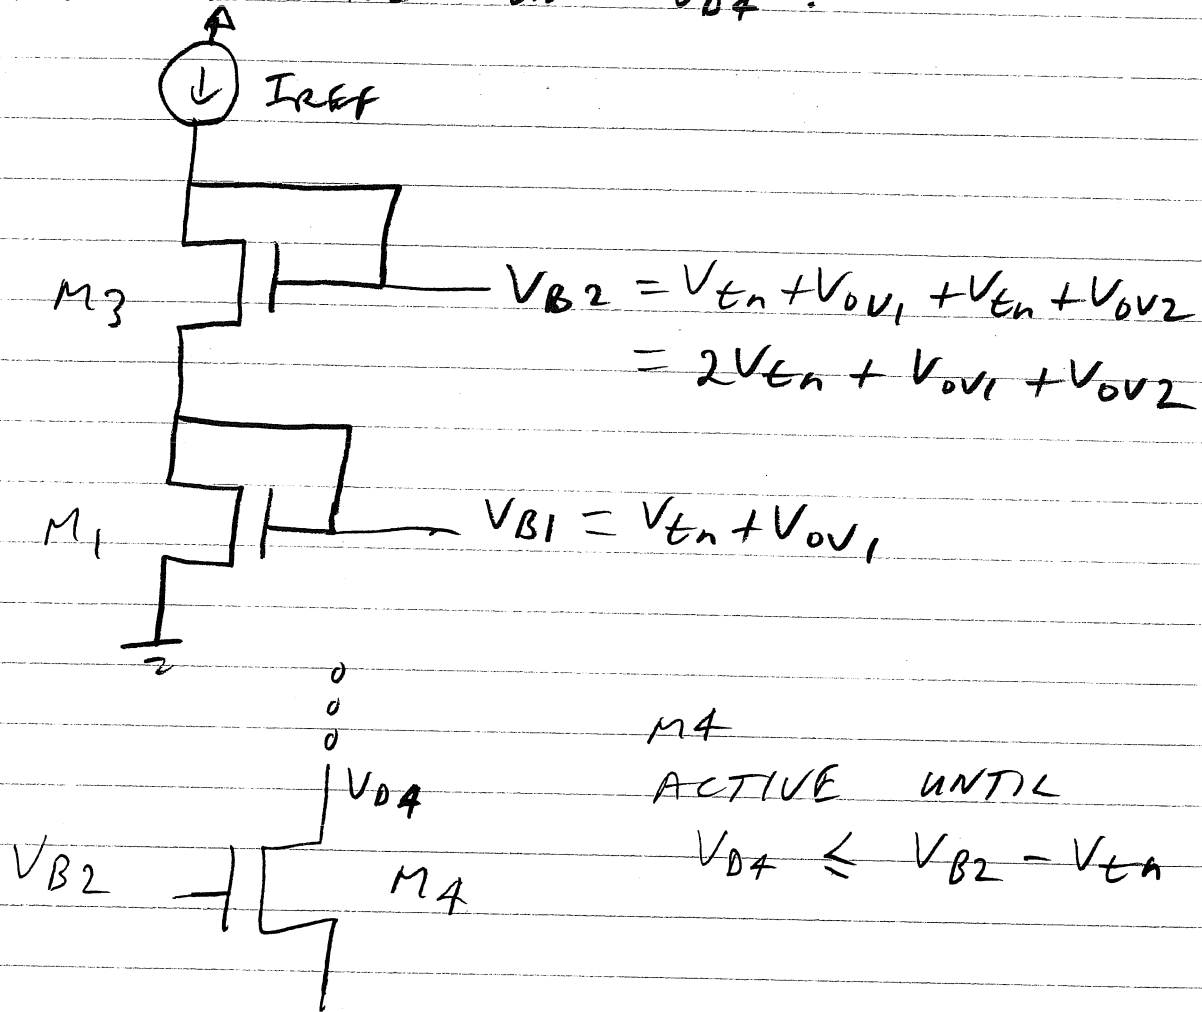 VD4
IREF
M3
VB2 = Vtn + Vov1 + Vtn + Vov2
= 2Vtn + Vov1 + Vov2
M1
VB1 = Vtn + Vov1
M4
ACTIVE UNTIL
VD4 ≤ VB2 - Vtn
VD4
VB2
M4